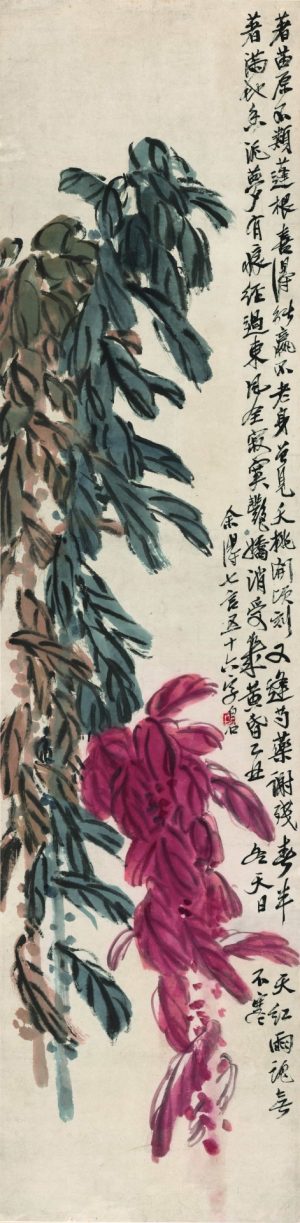 著苗原不類蓬根喜得能贏不老身曾見夭桃開頃刻又逢芍藥謝殘春半天紅雨魂無
著滿地香泥夢有痕經過東風全寂寞艷嬌消受幾黃昏乙丑天日不
余得七言五十六字